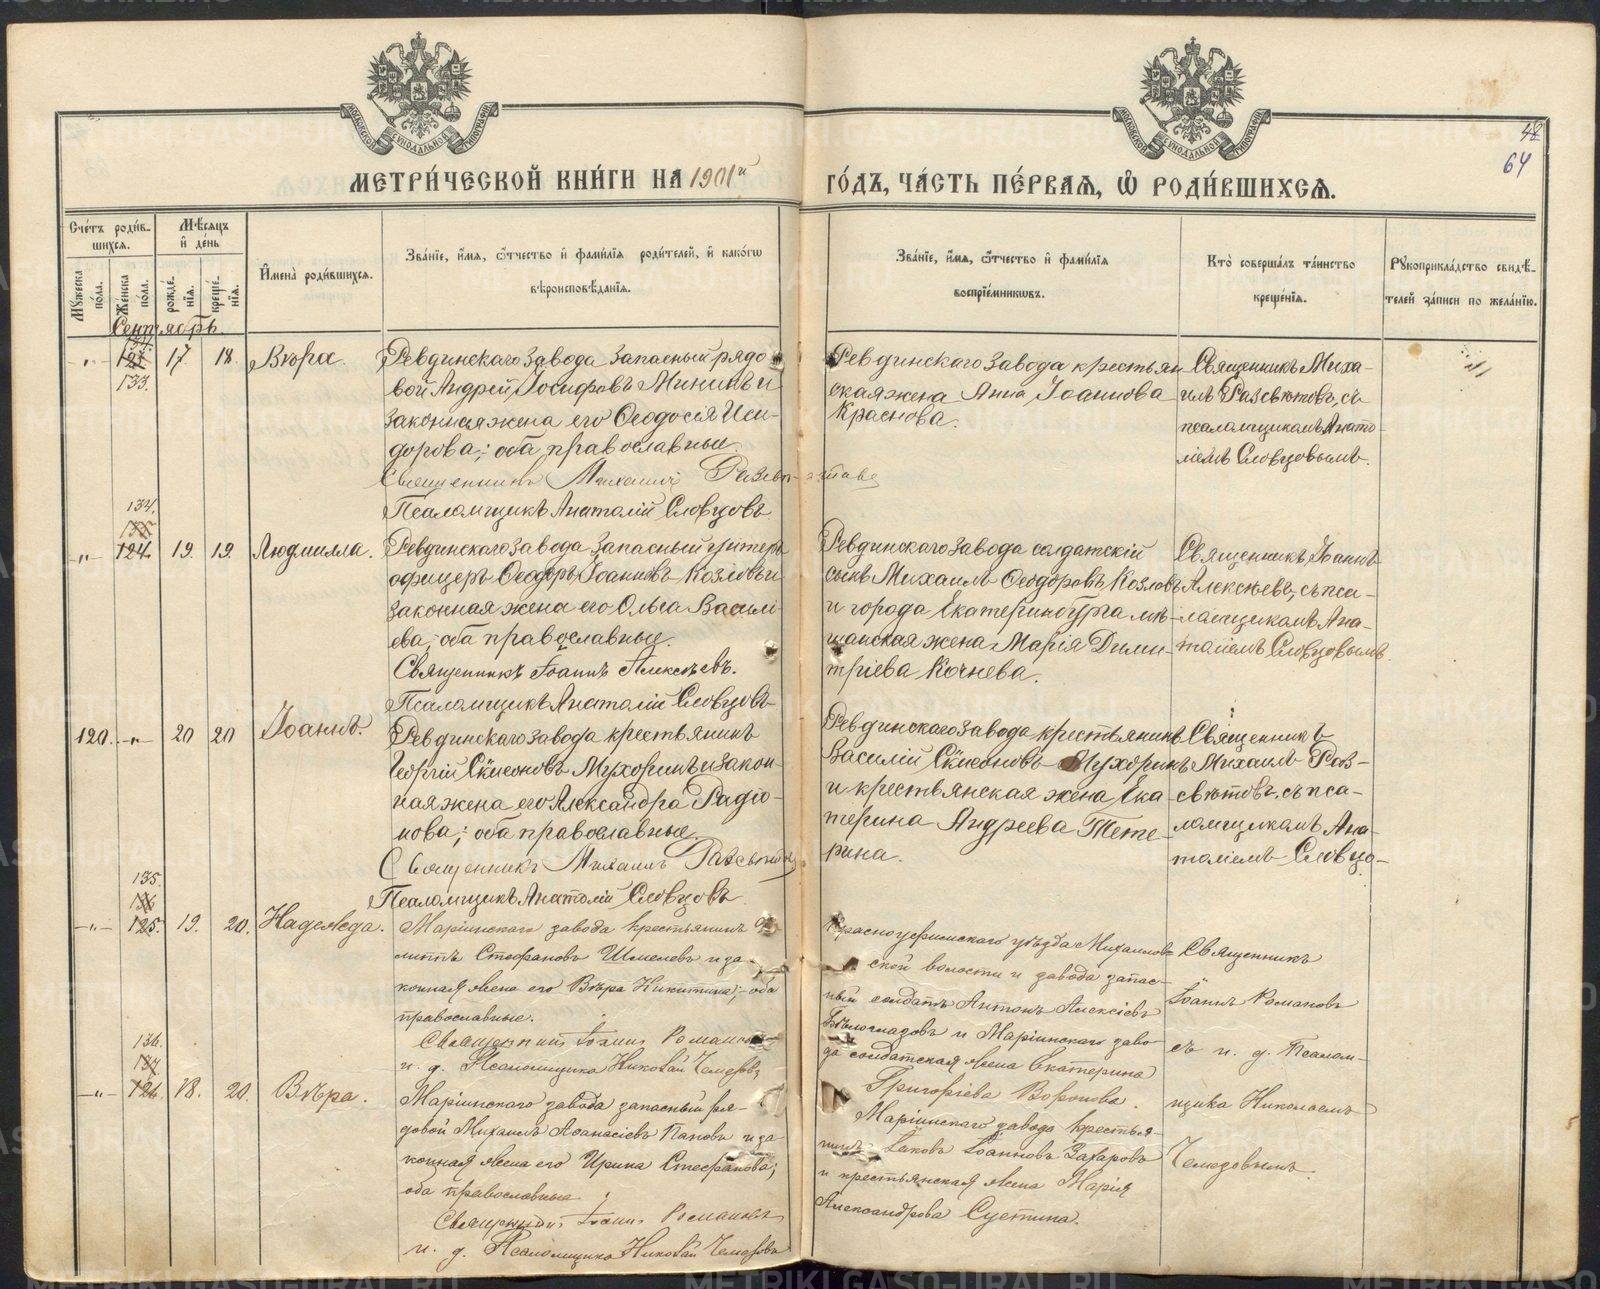 МЕТРИ́ЧЕСКОЙ КНИ́ГИ НА 1901й ГО́ДЪ, ЧА́СТЬ ПЕ́РВАѦ, Ѡ҆ РОДИ́ВШИХСѦ.
48
64
Сче́тъ роди́в-
шихся.
Мѣ́сяцъ
и҆ де́нь
Мꙋ́жеска
по́ла.
Же́нска
по́ла.
рожде́-
нїѧ.
креще́-
нїѧ.
И҆мена̀ роди́вшихся.
Зва́нїе, и҆́мѧ, ѻ҆́тчество и҆ фами́лїѧ роди́телей, и҆ како́гѡ
вѣ́роисповѣ́данїѧ.
Зва́нїе, и҆́мѧ, ѻ҆́тчество и҆ фами́лїѧ
воспрїе́мникѡвъ.
Кто̀ соверша́лъ та́инство
креще́нїѧ.
Рꙋкоприкла́дство свидѣ́-
телей за́писи по жела́нїю.
Сентябрь.
133.
17 18 Вѣра.
Ревдинскаго завода запасный рядо
вой Андрей Іосифовъ Мининъ и
законная жена его Ѳеодосія Иси-
дорова; оба православные.
Священникъ Михаилъ Разсвѣтовъ
Псаломщикъ Анатолій Словцовъ
Ревдинскаго завода крестьян
ская жена Анна Іоаннова
Краснова.
Священникъ Миха-
илъ Разсвѣтовъ, съ
псаломщикомъ Анато-
ліемъ Словцовымъ.
134.
124. 19. 19. Людмилла.
Ревдинскаго завода запасный унтеръ
офицеръ Ѳеодоръ Іоанновъ Козловъ и
законная жена его Ольга Василі-
ева, оба православные.
Священникъ Іоаннъ Алексѣевъ.
Псаломщикъ Анатолій Словцовъ
Ревдинскаго завода солдатскій
сынъ Михаилъ Ѳеодоровъ Козловъ
и города Екатеринбурга мѣ-
щанская жена Марія Дими-
тріева Кочнева.
Священникъ Іоаннъ
Алексѣевъ, съ пса-
ломщикомъ Ана-
толіемъ Словцовымъ.
120. „ 20 20 Іоаннъ.
Ревдинскаго завода крестьянинъ
Георгій Сѵмеоновъ Мухоринъ и закон
ная жена его Александра Радіо-
нова; оба православные.
Священникъ Михаилъ Разсвѣтовъ
Псаломщикъ Анатолій Словцовъ
Ревдинскаго завода крестьянинъ
Василій Сѵмеоновъ Мухоринъ
и крестьянская жена Ека-
терина Андреева Тете-
рина.
Священникъ
Михаилъ Раз-
свѣтовъ, съ пса-
ломщикомъ Ана-
толіемъ Словцо-
135.
125. 19. 20. Надежда.
Маріинскаго завода крестьянинъ
липпъ Стефановъ Шмелевъ и за-
конная жена его Вѣра Никитина; оба
православные.
Священникъ Іоаннъ Романовъ
и. д. Псаломщика Николай Чемезовъ
Красноуфимскаго уѣзда Михайлов-
ской волости и завода запас-
ный солдатъ Антонъ Алексіевъ
Бѣлоглазовъ и Маріинскаго заво-
да солдатская жена Екатерина
Григоріева Воронова.
Священникъ
Іоаннъ Романовъ
съ и. д. Псалом-
щика Николаемъ
Чемезовымъ.
136.
126. 18. 20. Вѣра.
Маріинскаго завода запасный ря-
довой Михаилъ Аѳанасіевъ Пановъ и за
конная жена его Ирина Стефанова;
оба православные
Священникъ Іоаннъ Романовъ
и. д. Псаломщика Николай Чемезовъ
Маріинскаго завода крестья-
нинъ Іаковъ Іоанновъ Захаровъ
и крестьянская жена Марія
Александрова Суетина.